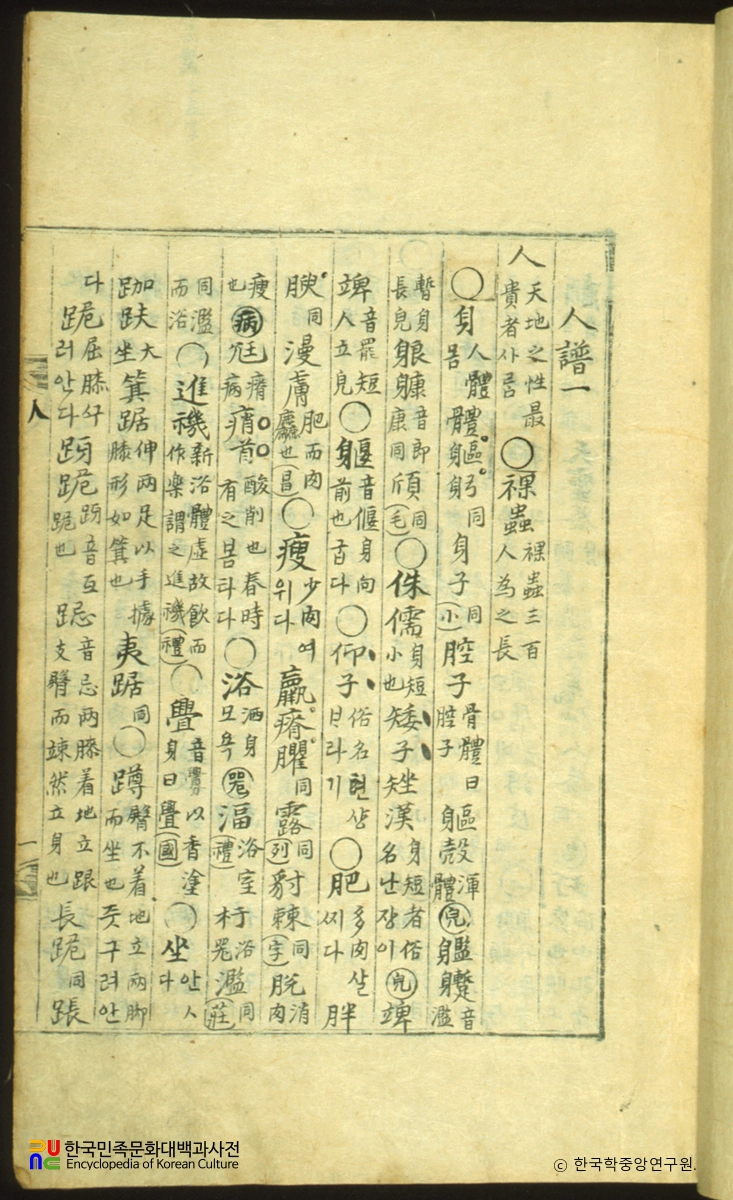 人譜一
人 天地之性最貴者사ᄅᆞᆷ ○裸蟲 裸蟲三百人為之長
○身 人體몸 體軀躬 同 身子 同(小) 腔子 骨體曰腔子 軀殼 渾體(皃) 音濫
暫身長皃 躴躿 音郎康同 頎 同(毛) ○侏儒 身短小也 矮子矬漢 身短者俗名난장이 (皃) 䇑
音罷短人立皃 ○躽 音偃身向前也굽다 ○仰子 俗名현샹ᄇᆞ라기 ○肥 多肉살찌다 胖
腴 同 漫膚 肥而肉也(昌) ○瘦 少肉여위다 羸瘠臞 同 露 同(列) 豺棘 同(字) 脫 消肉
瘦也(病) 尫 瘠病 痟首 酸削也春時有之몸타다 ○浴 洒身모욕(器) 湢 浴室(禮) 杅 浴器 濫 同(莊)
同濫而浴 ○進禨 新浴體虛故飲而作樂謂之進禨(禮) ○釁 音釁以香塗身曰釁(國) ○坐 안人다
跏趺 大坐 箕踞 伸兩足以手據膝形如箕也 夷踞 同 ○蹲 臀不着地立兩脚而坐也쥿구려안
다 跪 屈膝ᄭᅮ러안다 跪 音互跪也 音忌兩膝着地立跟支臀而竦然立身也 長跪 同 䠆
人
一
한국민족문화대백과사전
Encyclopedia of Korean Culture
ⓒ 한국학중앙연구원.